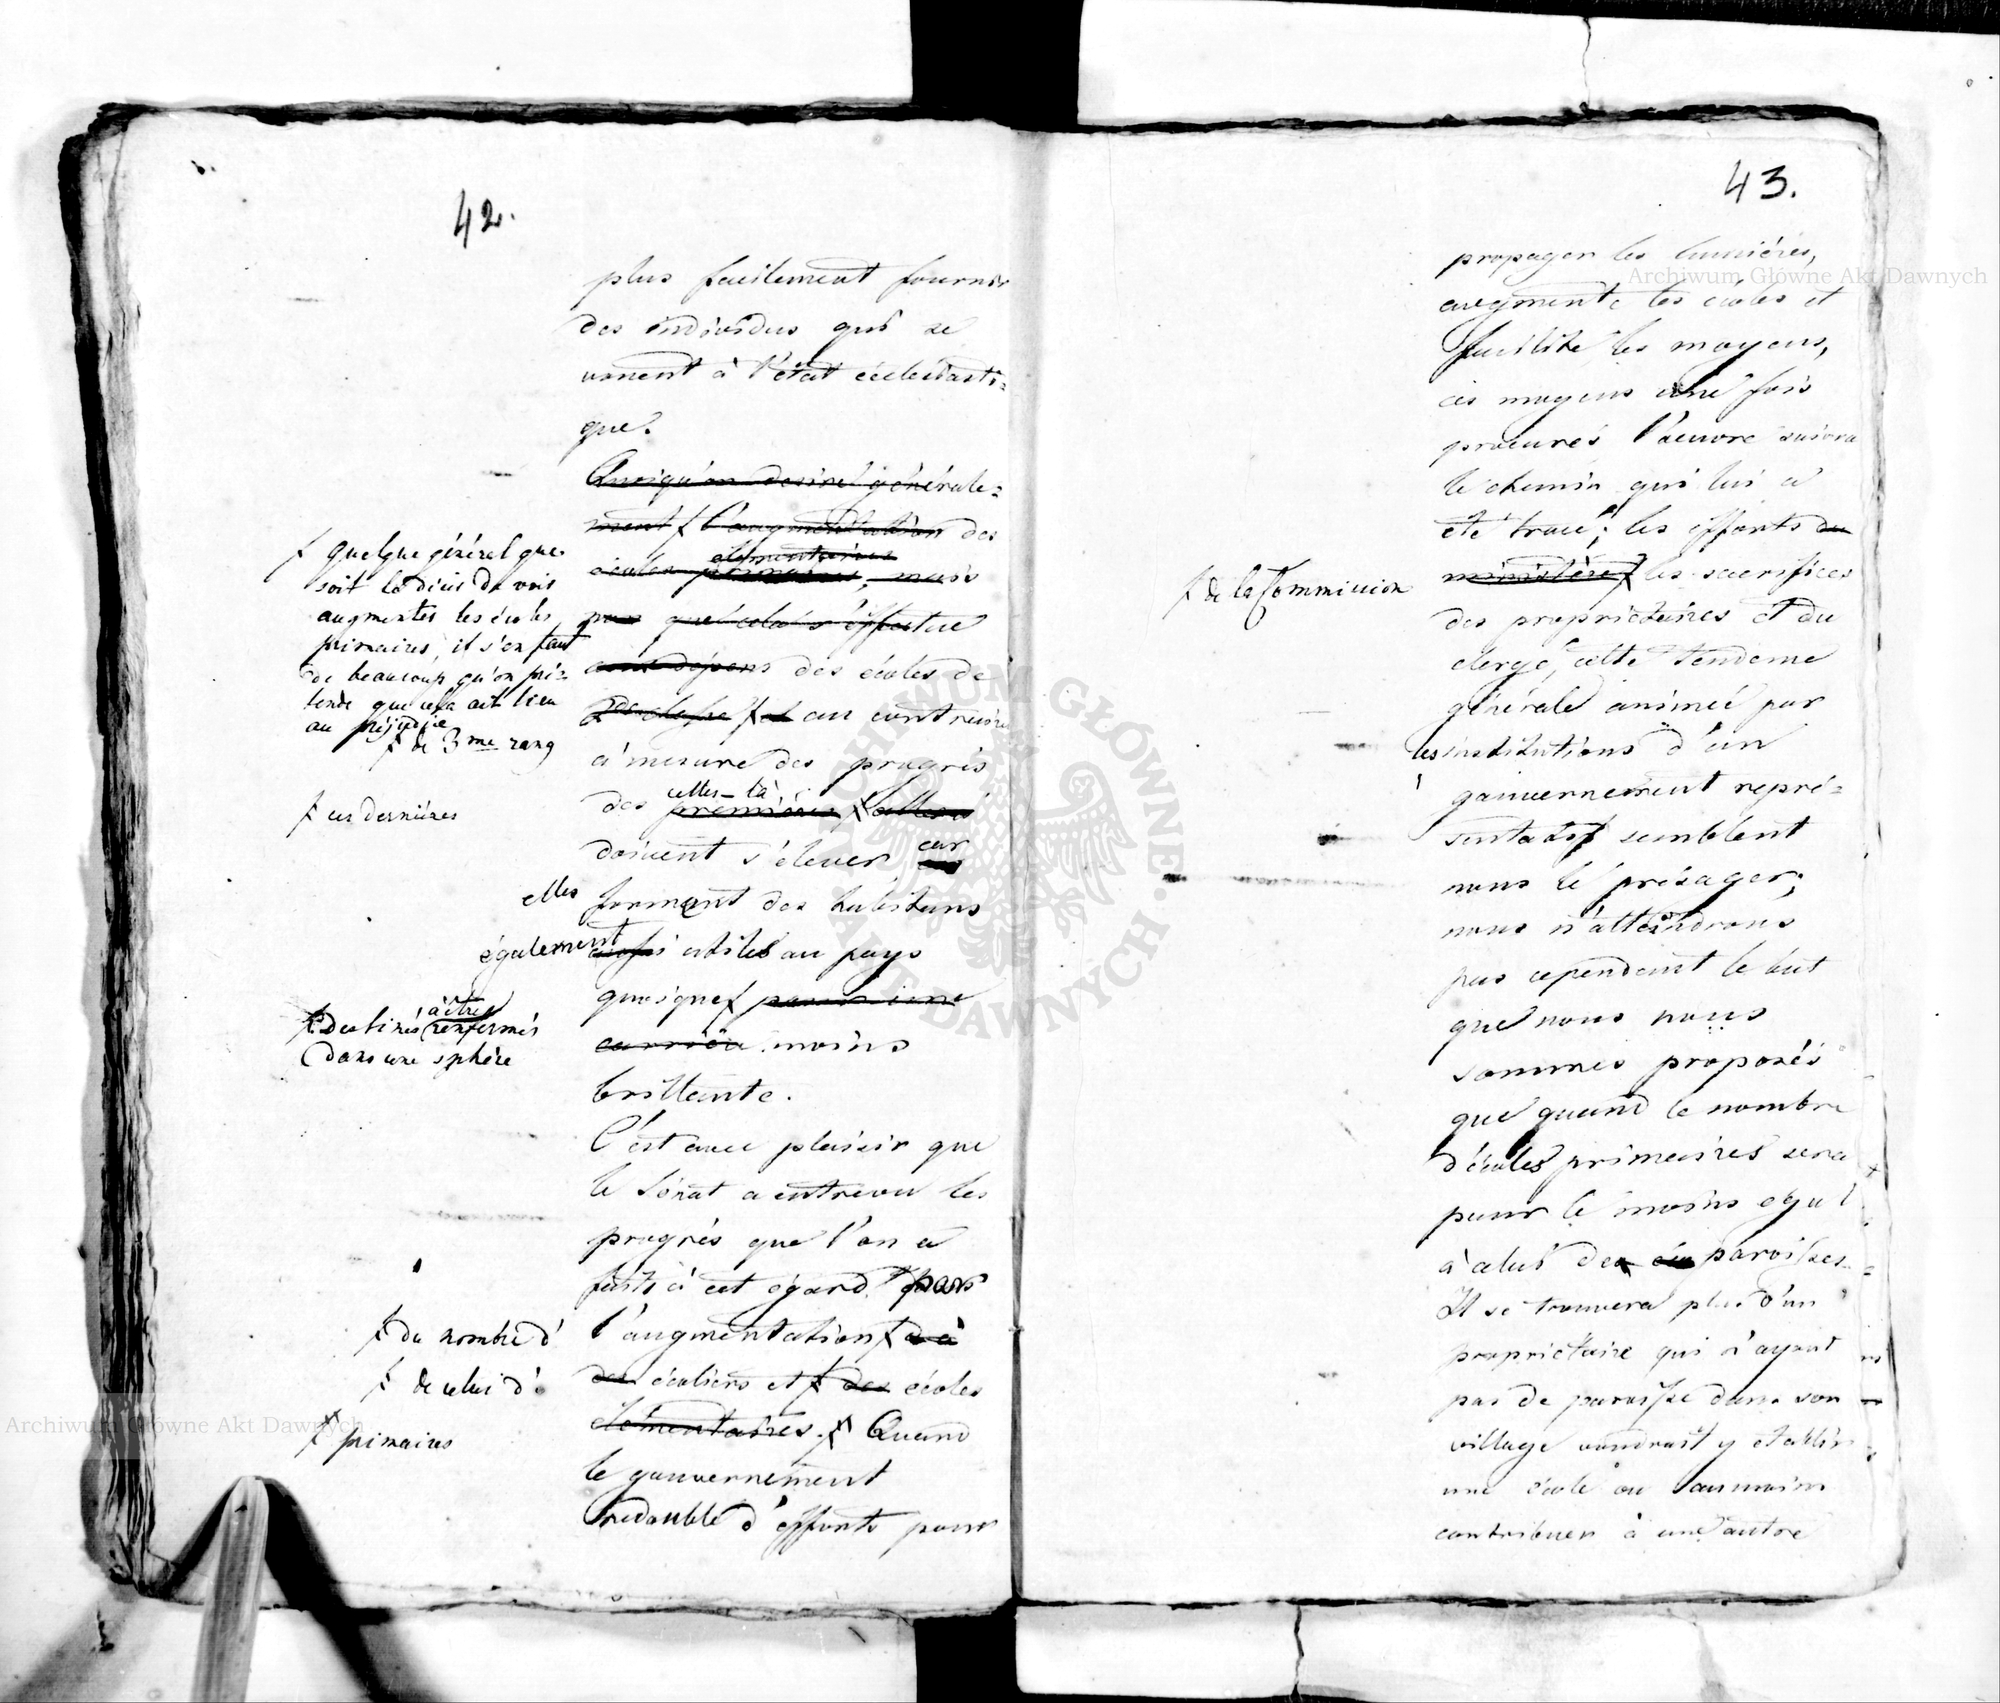 42.
plus facilement fournir
des individus qui se
vouent à l'état écclesiasti=
que.
Quoiqu'on desire générale=
ment ƒ l'augmentation des
élementaires
écoles primaires, mais
pas que cela s'éffectue
aux dépens des écoles de
ƒ quelque général que
soit le désir de voir
augmenter les écoles
primaires, il s'en faut
de beaucoup qu'on pré=
tende que cela ait lieu
au préjudice
ƒ de 3me rang
classe ƒ et au contraire
à mesure des progrès
celles-là
des premières ƒ celles ci
ƒ ces dernières
doivent s'élever car
elles forment des habitans
également aussi utiles au pays
quoique ƒ pour une
carrière moins
ƒ destinés à être renfermés
dans une sphère
brillante.
C'est avec plaisir que
le Sénat a entrevu les
progrès que l'on a
faits à cet égard par
ƒ du nombre d'
l'augmentation ƒ
ƒ de celui d'
des écoliers et ƒ des écoles
élémentaires. ƒ Quand
ƒ primaires
le gouvernement
redouble d'éfforts pour
43.
propager les lumières,
augmente les écoles et
facilite les moyens,
ces moyens une fois
procurés l'œuvre suivra
le chemin qui lui a
été tracé; les éfforts du
ministère ƒ les sacrifices
ƒ de la Commission
des proprietaires et du
clergé, cette tendence
générale animée par
les institutions d'un
gouvernement repré=
sentatif semblent
nous le présager;
nous n'atteindrons
pas cependant le but
que nous nous
sommes proposés
que quand le nombre
d'écoles primaires sera
pour le moins égal
à celui des paroisses.
Il se trouvera plus d'un
propriétaire qui n'ayant
pas de paroisse dans son
village voudrait y établir
une école ou au moins
contribuer à une autre
Archiwum Główne Akt Dawnych
Archiwum Główne Akt Dawnych
ARCHIWUM GŁÓWNE AKT DAWNYCH